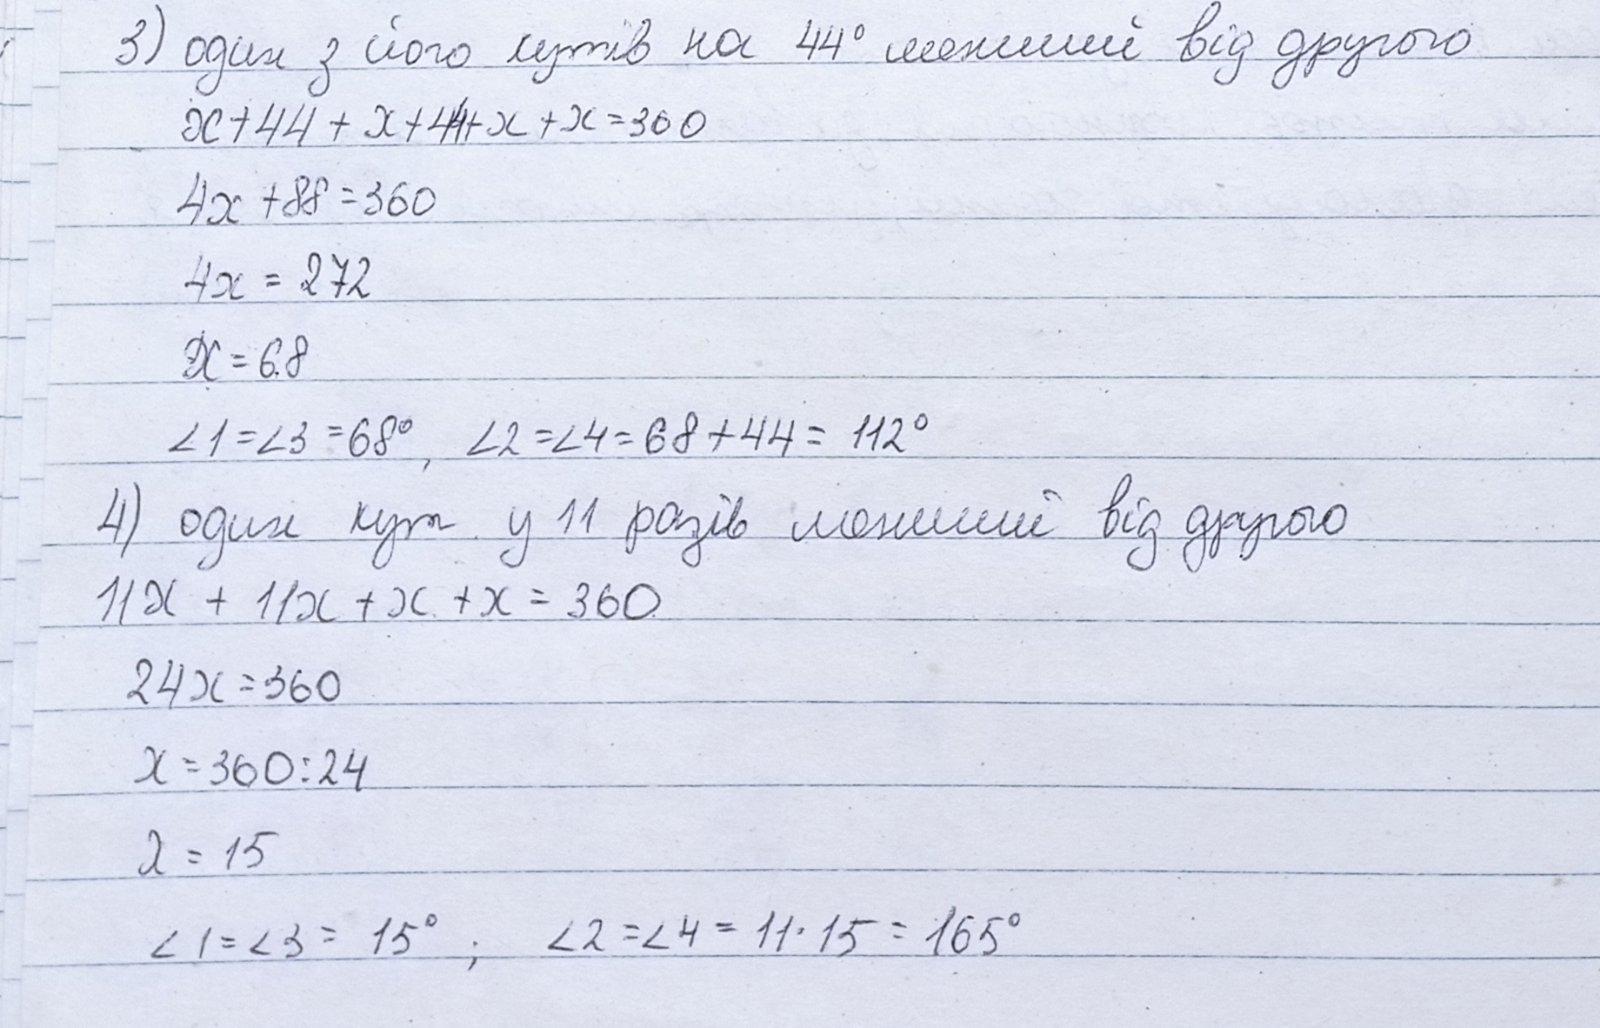 3) один з його кутів на 44° менший від другого
x+44+x+44+x+x=360
4x+88=360
4x=272
x=68
∠1=∠3=68°, ∠2=∠4=68+44=112°
4) один кут у 11 разів менший від другого
11x+11x+x+x=360
24x=360
x=360:24
x=15
∠1=∠3=15°; ∠2=∠4=11·15=165°